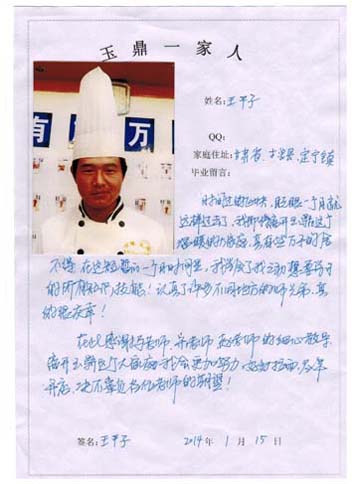 玉鼎一家人
有 万
姓名:王平子
QQ:
家庭住址:甘肃省,古浪县,定宁镇
毕业留言:
时间过的好快,眨眼一个月就
这样过去了,我即将离开玉鼎这个
温暖的大家庭,真有些万分的舍
不得,在这短暂的一个月时间里,我学会了我之前想要学习
的所有的技能!认识了许多不同地方的师兄弟,真
的很庆幸!
在此感谢 老师, 老师 老师的细心教导,
离开玉鼎这个大家庭,我会更加努力,好好拉面,
开店,决不辜负各位老师的期望!
签名:王平子 2014年1月15日